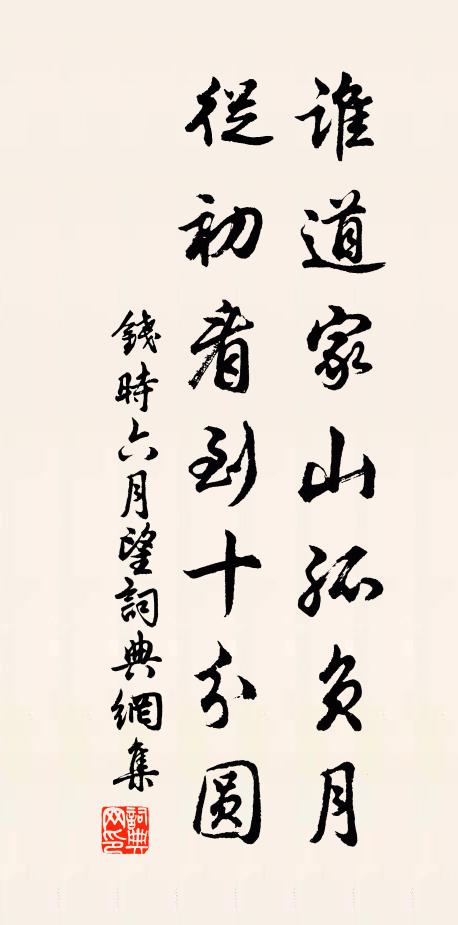 誰道家山孤負月
從初看到十分圓
錢時六月望詞典網集
詞典網印